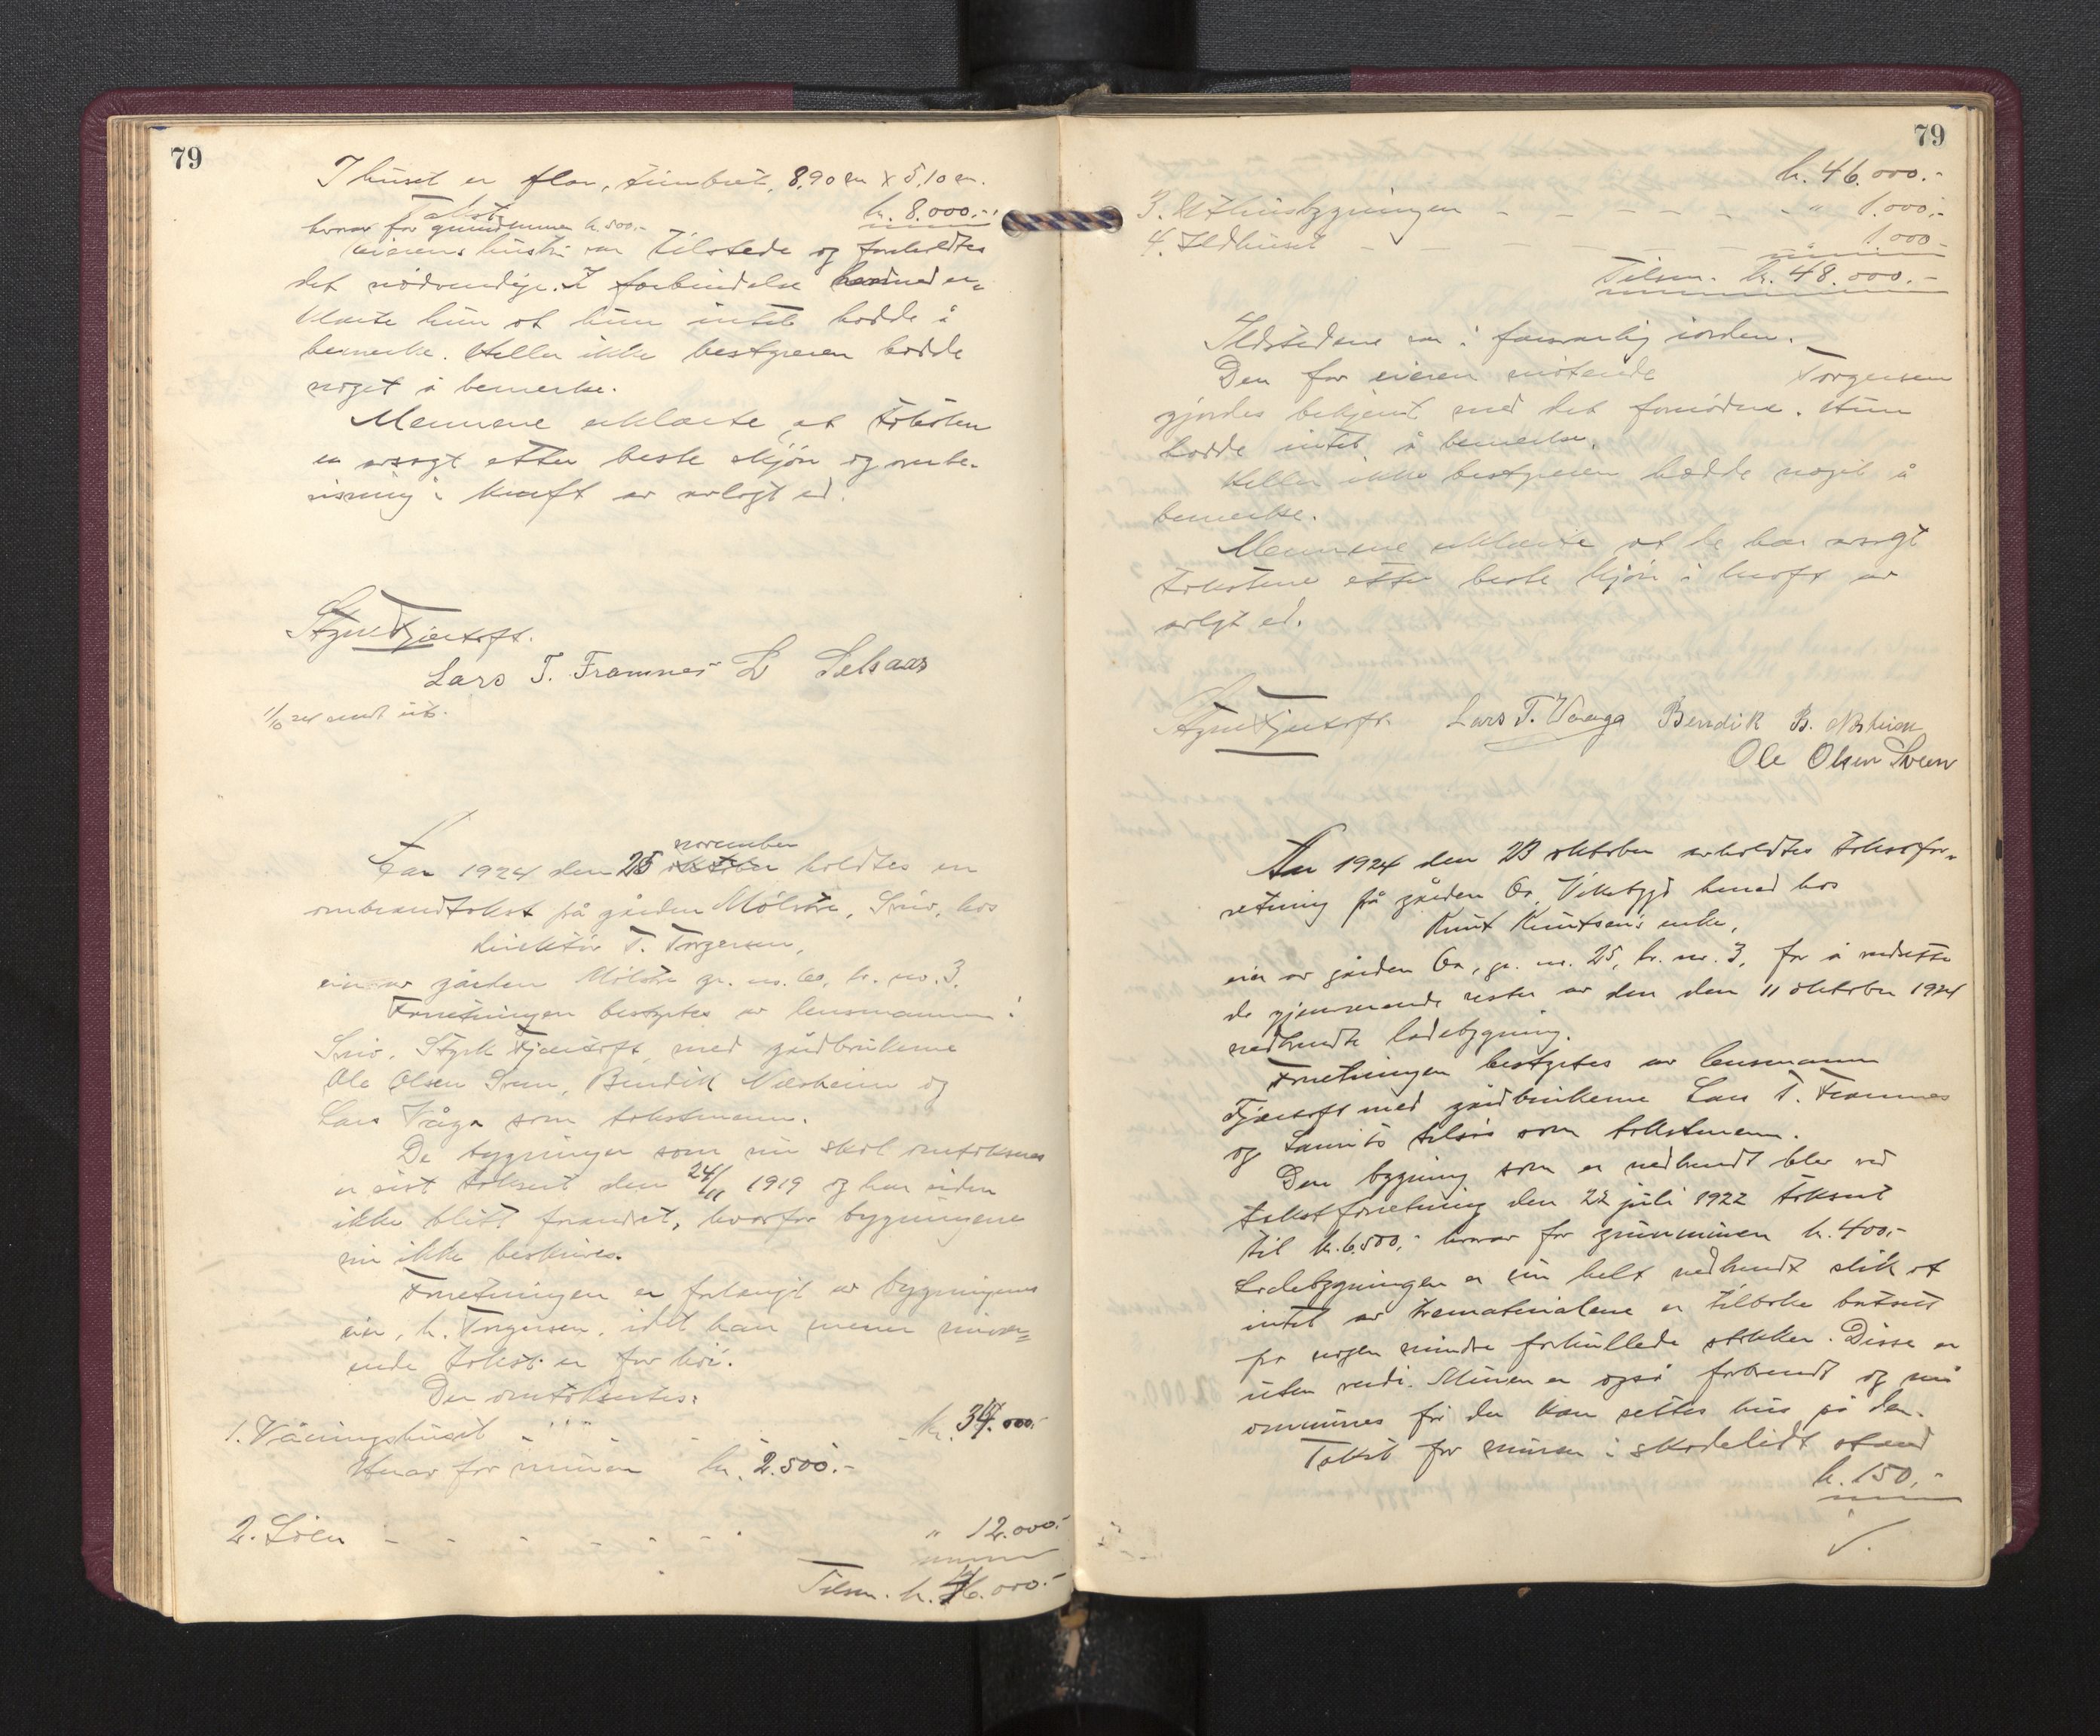 79
I huset er flor, tømbret, 8,90 m x 5,10 m.
Takst kr. 8.000.-
hvorav for grundmuren kr. 500.-
Eierens hustru var tilstede og foreholdtes
det nødvendige. I forbindelse hermed er-
klærte hun at hun intet hadde å
bemerke. Heller ikke bestyreren hadde
noget å bemerke.
Mennene erklærte at taksten
er avsagt etter beste skjøn og overbe-
visning i kraft av avlagt ed.
Styrk Fjærtoft.
Lars T. Framnes L Selsaas
november
Aar 1924 den 25 oktober holdtes en
ombrandtakst på gården Mølstre, Sveio, hos
direktør T. Torgersen,
eier av gården Mølstre gr. no. 60, br. no. 3.
Forretningen bestyrtes av lensmannen i
Sveio, Styrk Fjærtoft, med gårdbrukerne
Ole Olsen Sveen, Bendik Nærheim og
Lars Våga som takstmenn.
De bygninger som nu skal omtakseres
er sist taksert den 24/11 1919 og har siden
ikke blitt forandret, hvorfor bygningene
nu ikke beskrives.
Forretningen er forlangt av bygningenes
eier, h. Torgersen, idet han mener nuvær-
ende takst er for høi.
Der omtaksertes:
1. Våningshuset - - - - - kr. 34.000.-
Herav for muren kr. 2.500.-
2. Løen - - - - - - " 12.000.-
Tilsm. kr. 46.000.-
79
kr. 46.000.-
3. Uthusbygningen - - - - - - " 1.000.-
4. Ildhuset - - - " 1.000.-
Tilsm. kr. 48.000.-
Ildstedene var i forsvarlig orden.
Den for eieren møtende Torgersen
gjordes bekjent med det fornødne. Hun
hadde intet å bemerke.
Heller ikke bestyreren hadde noget å
bemerke.
Mennene erklærte at de har avsagt
takstene etter beste skjøn i kraft av
avlagt ed.
Styrk Fjærtoft. Lars T. Vaaga Bendik B. Nærheim
Ole Olsen Sveen
Aar 1924 den 23 oktober avholdtes taksfor-
retning på gården Ø, Vikebygd herred hos
Knut Knutsens enke,
eier av gården Ø, gr. no. 25, br. no. 3, for å verdsette
de gjenværende rester av den den 11 oktober 1924
nedbrendte ladebygning.
Forretningen bestyrtes av lensmann
Fjærtoft med gårdbrukerne Lars T. Framnes
og Laurits Selsås som takstmenn.
Den bygning som er nedbrendt blev ved
takstforretning den 22 juli 1922 taksert
til kr. 6.500,- hvorav for grunnmuren kr. 400.-
Ladebygningen er nu helt nedbrendt slik at
intet av trematerialene er tilbake bortsett
fra nogen mindre forkullede stokker. Disse er
uten verdi. Muren er også forbrendt og må
ommures før der kan settes hus på den.
Takst for muren i skadelidt stand
kr. 150,-